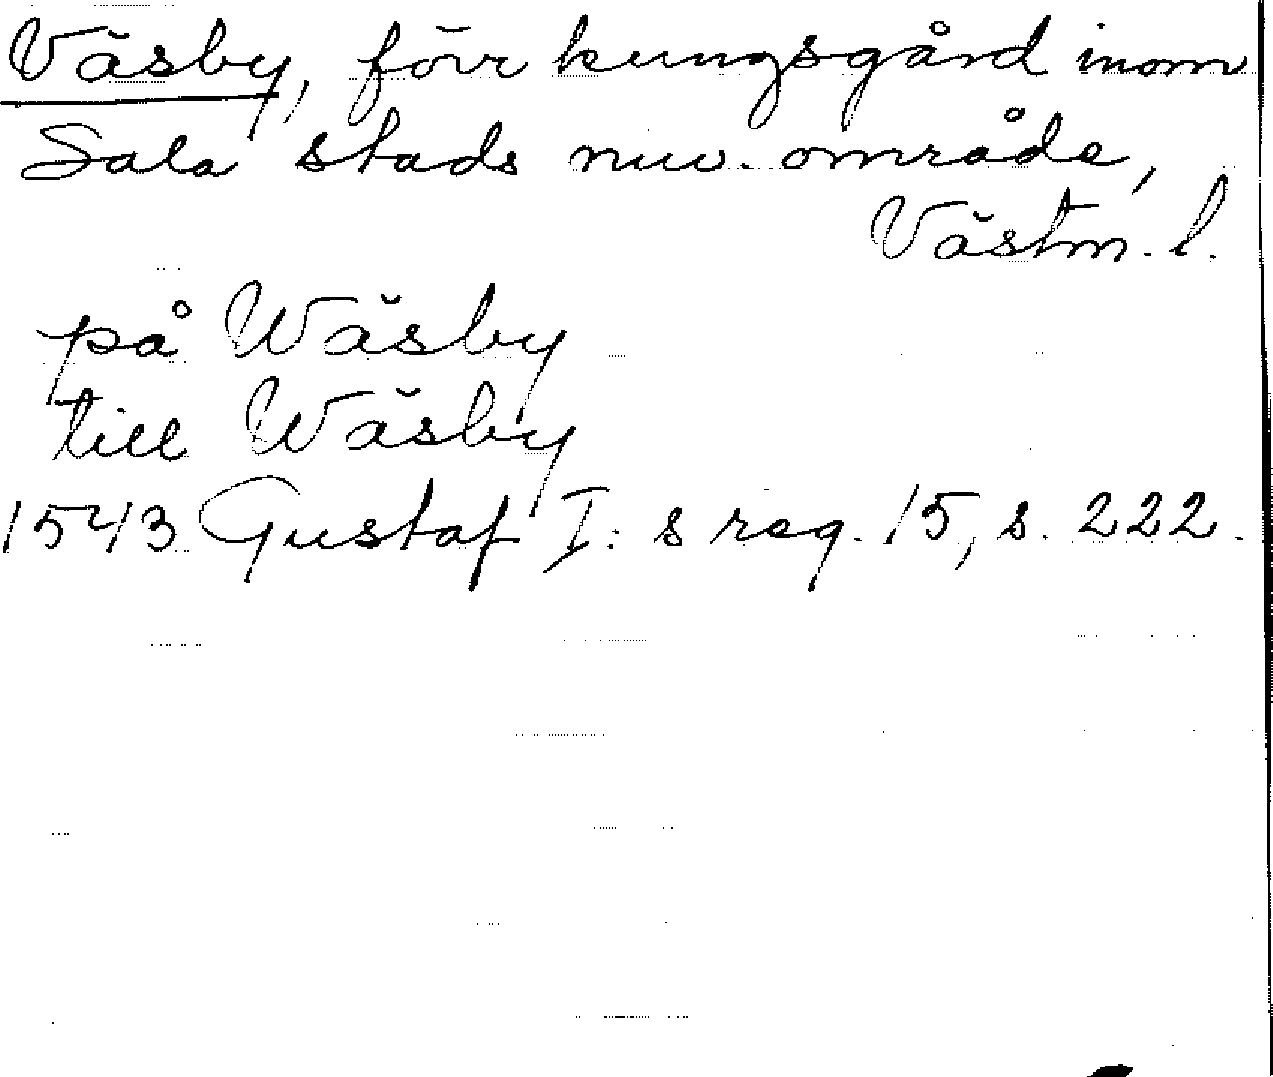 Väsby, förr kungsgård inom
Sala stads nuv. område,
Västm. l.
på Wäsby
till Wäsby
1543 Gustaf I:s reg. 15, s. 222.